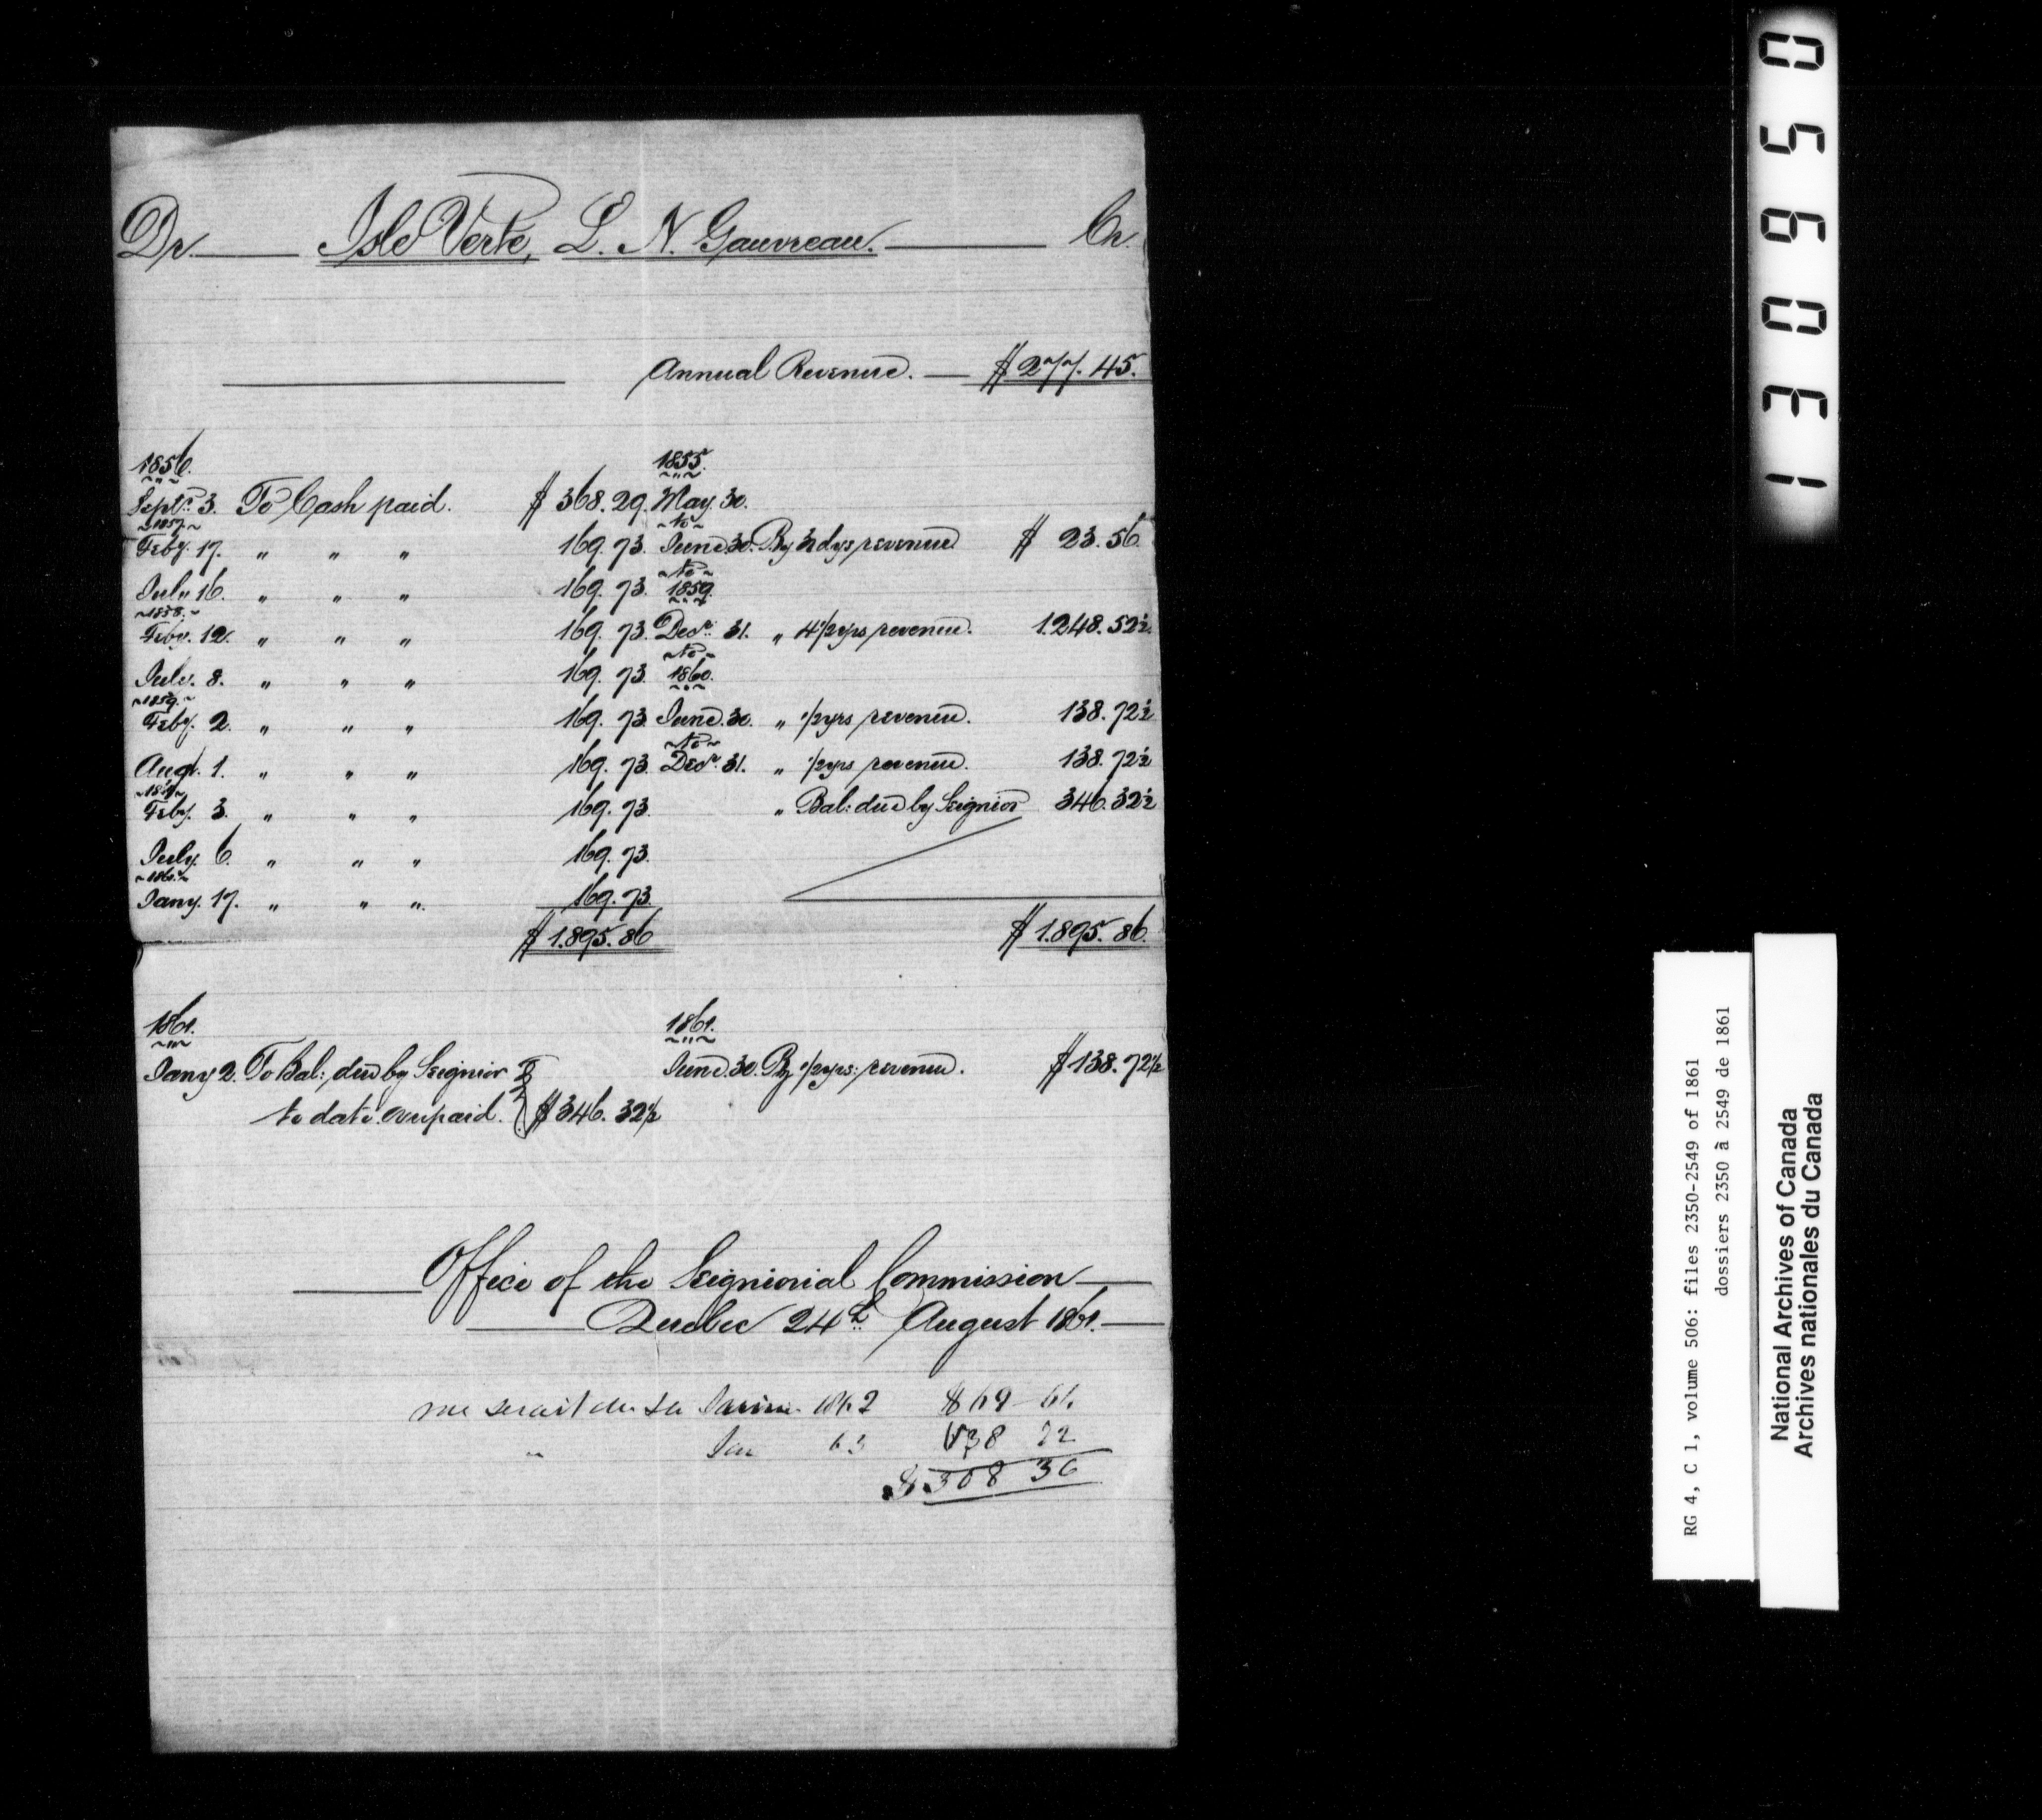 Dr. Isle Verte, L. N. Gauvreau. Cr.
Annual Revenue. $277.45.
1856. 1855.
Septr. 3. To Cash paid. $368.29. May. 30.
1857. to
Feby. 17. " " " 169.73. June 30. By 31 dys revenue $23.56.
to
July 16. " " " 169.73. 1859.
1858.
Feby. 12. " " " 169.73. Decr. 31. " 4 1/2 yrs revenue. 1.248.52½
to
July. 8. " " " 169.73. 1860.
1859.
Feby. 2. " " " 169.73. June. 30. " 1/2 yrs revenue. 138.72½
to
Augt. 1. " " " 169.73. Decr. 31. " 1/2 yrs revenue. 138.72½
Feby. 3. " " " 169.73. " Bal: due by Seignior 346.32½
July. 6. " " " 169.73.
Jany. 17. " " " 169.73.
$1.895.86 $1.895.86.
1861. 1861.
Jany 2. To Bal: due by Seignior June. 30. By 1/2 yrs: revenue. $138.72½
to date overpaid. $346.32½
Office of the Seigniorial Commission
Quebec 24th August 1861.
me serait du 1862 $69
" 63 138 72
$308 36
130950
RG 4, C 1, volume 506: files 2350-2549 of 1861
dossiers 2350 à 2549 de 1861
National Archives of Canada
Archives nationales du Canada